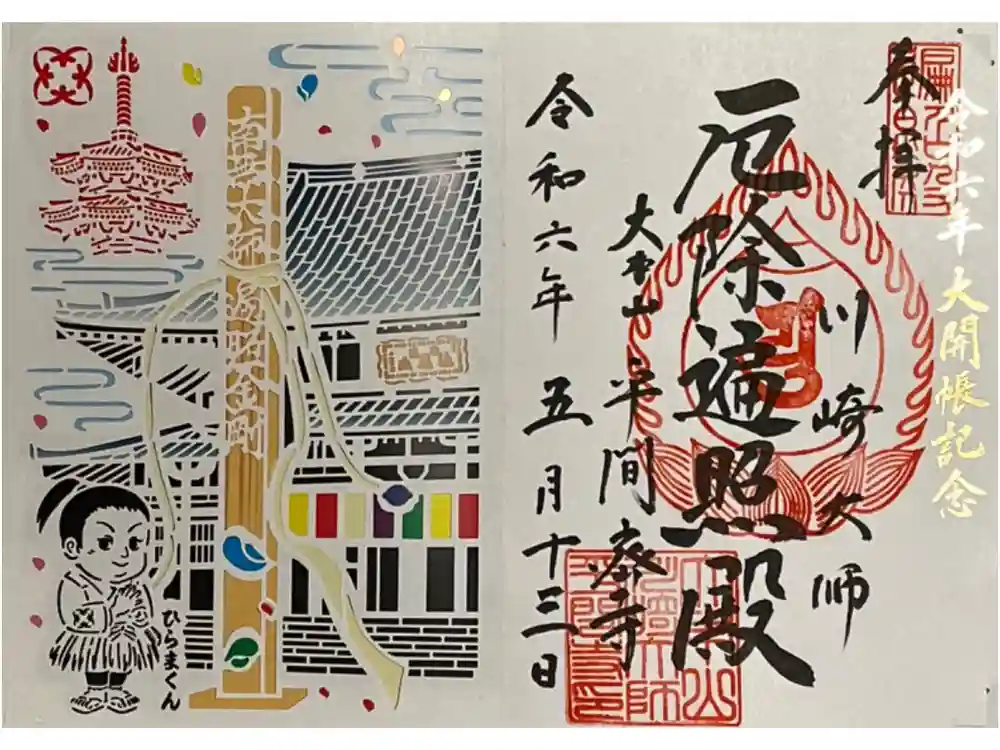 奉拝
令和六年 大開帳記念
川崎大師
厄除遍照殿
大本山 平間寺
令和六年 五月十三日
南無大師遍照金剛
ひらまくん